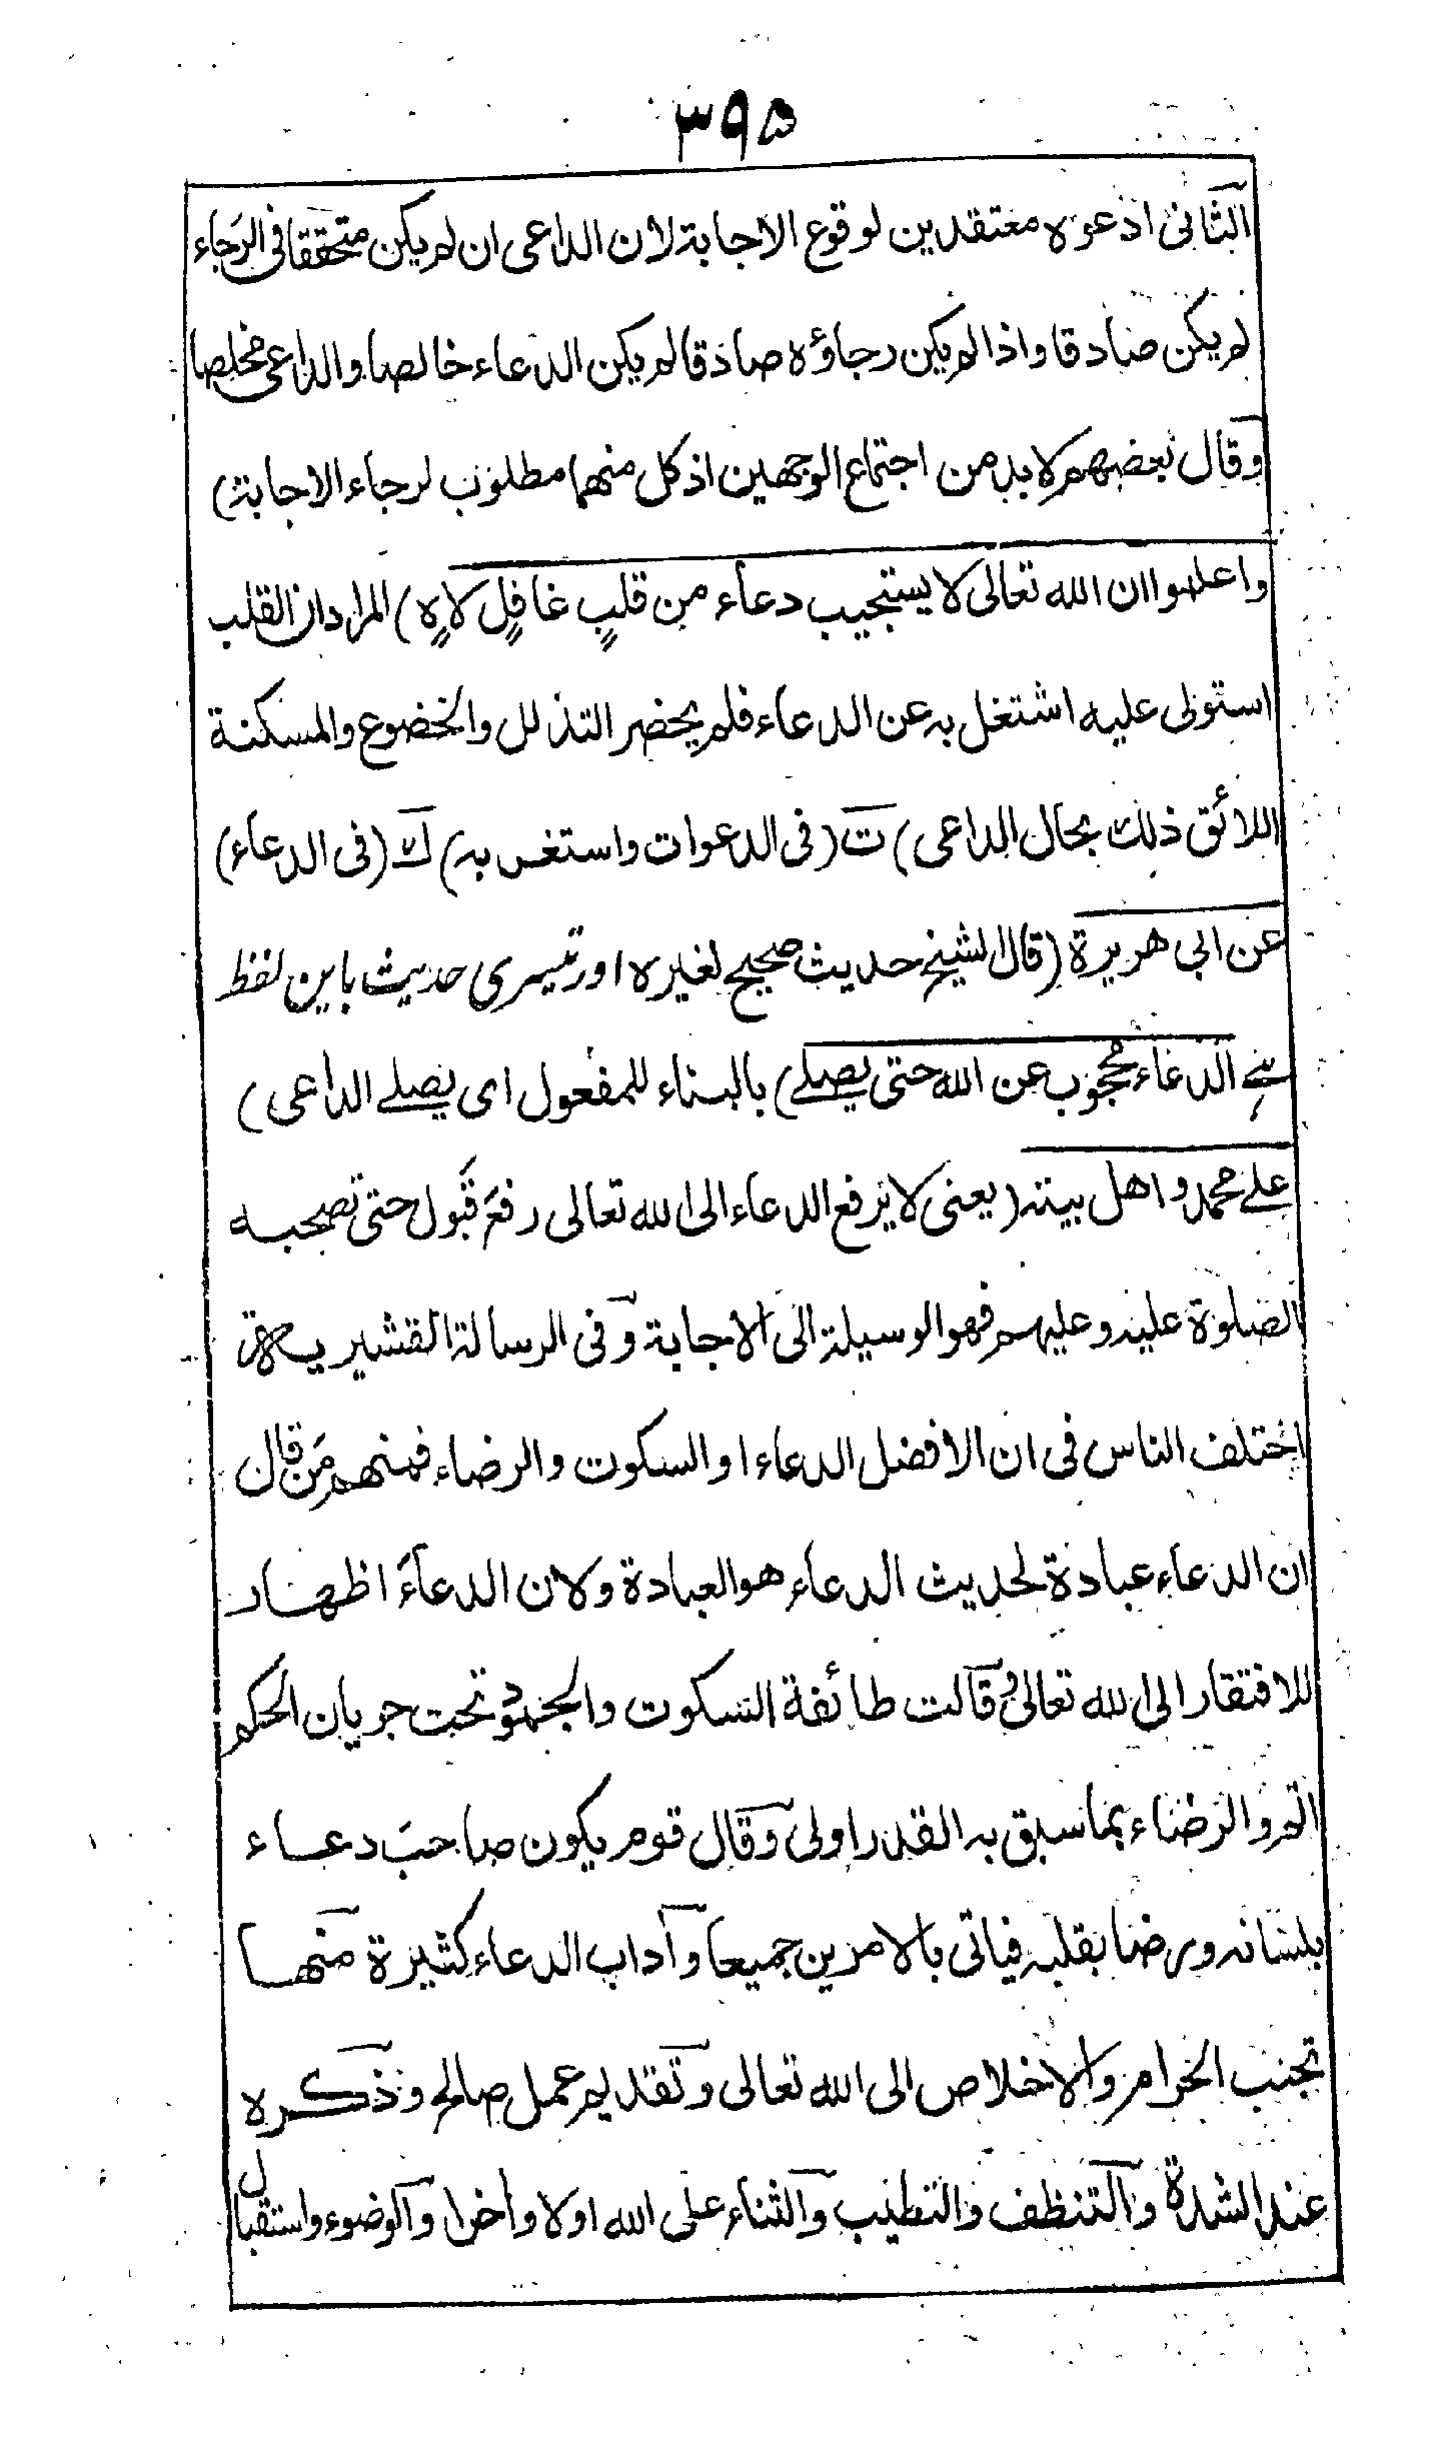 ۳۹۵
الثانی ادعوه معتقدین لوقوع الاجابة لان الداعی ان لم یکن متحققا فی الرجاء
لم یکن صادقا واذا لم یکن رجاؤه صادقا لم یکن الدعاء خالصا والداعی مخلصا
وقال بعضهم لا بد من اجتماع الوجهین اذ کل منهما مطلوب لرجاء الاجابة)
واعلموا ان الله تعالی لا یستجیب دعاء من قلبٍ غافلٍ لاهٍ) المراد ان القلب
استولی علیه اشتغل به عن الدعاء فلم یحضر التذلل والخضوع والمسکنة
اللائق ذلک بحال الداعی) ت (فی الدعوات واستغربه) ک (فی الدعاء)
عن ابی هریرة (قال الشیخ حدیث صحیح لغیره اور تیسری حدیث باین لفظ
ہے الدعاء محجوب عن الله حتی یصلے) بالبناء للمفعول ای یصلے الداعی)
علے محمد واهل بیته (یعنی لا یرفع الدعاء الی الله تعالی رفعَ قَبول حتی تصحبه
الصلوة علیه وعلیهم فهو الوسیلة الی الاجابة وفی الرسالة القشیریة
اختلف الناس فی ان الافضل الدعاء او السکوت والرضاء فمنهم مَن قال
ان الدعاء عبادة لحدیث الدعاء هو العبادة ولان الدعاءَ اظهار
للافتقار الی الله تعالی وقالت طائفة السکوت والجمود تحت جریان الحکم
اتم والرضاء بما سبق به القدر اولی وقال قوم یکون صاحبَ دعاء
بلسانه ورضا بقلبه فیاتی بالامرین جمیعا وآداب الدعاء کثیرة منها
تجنب الحرام والاخلاص الی الله تعالی وتقدیم عمل صالح وذکره
عند الشدة والتنظف والتطیب والثناء علی الله اولا وأخرا والوضوء واستقبال